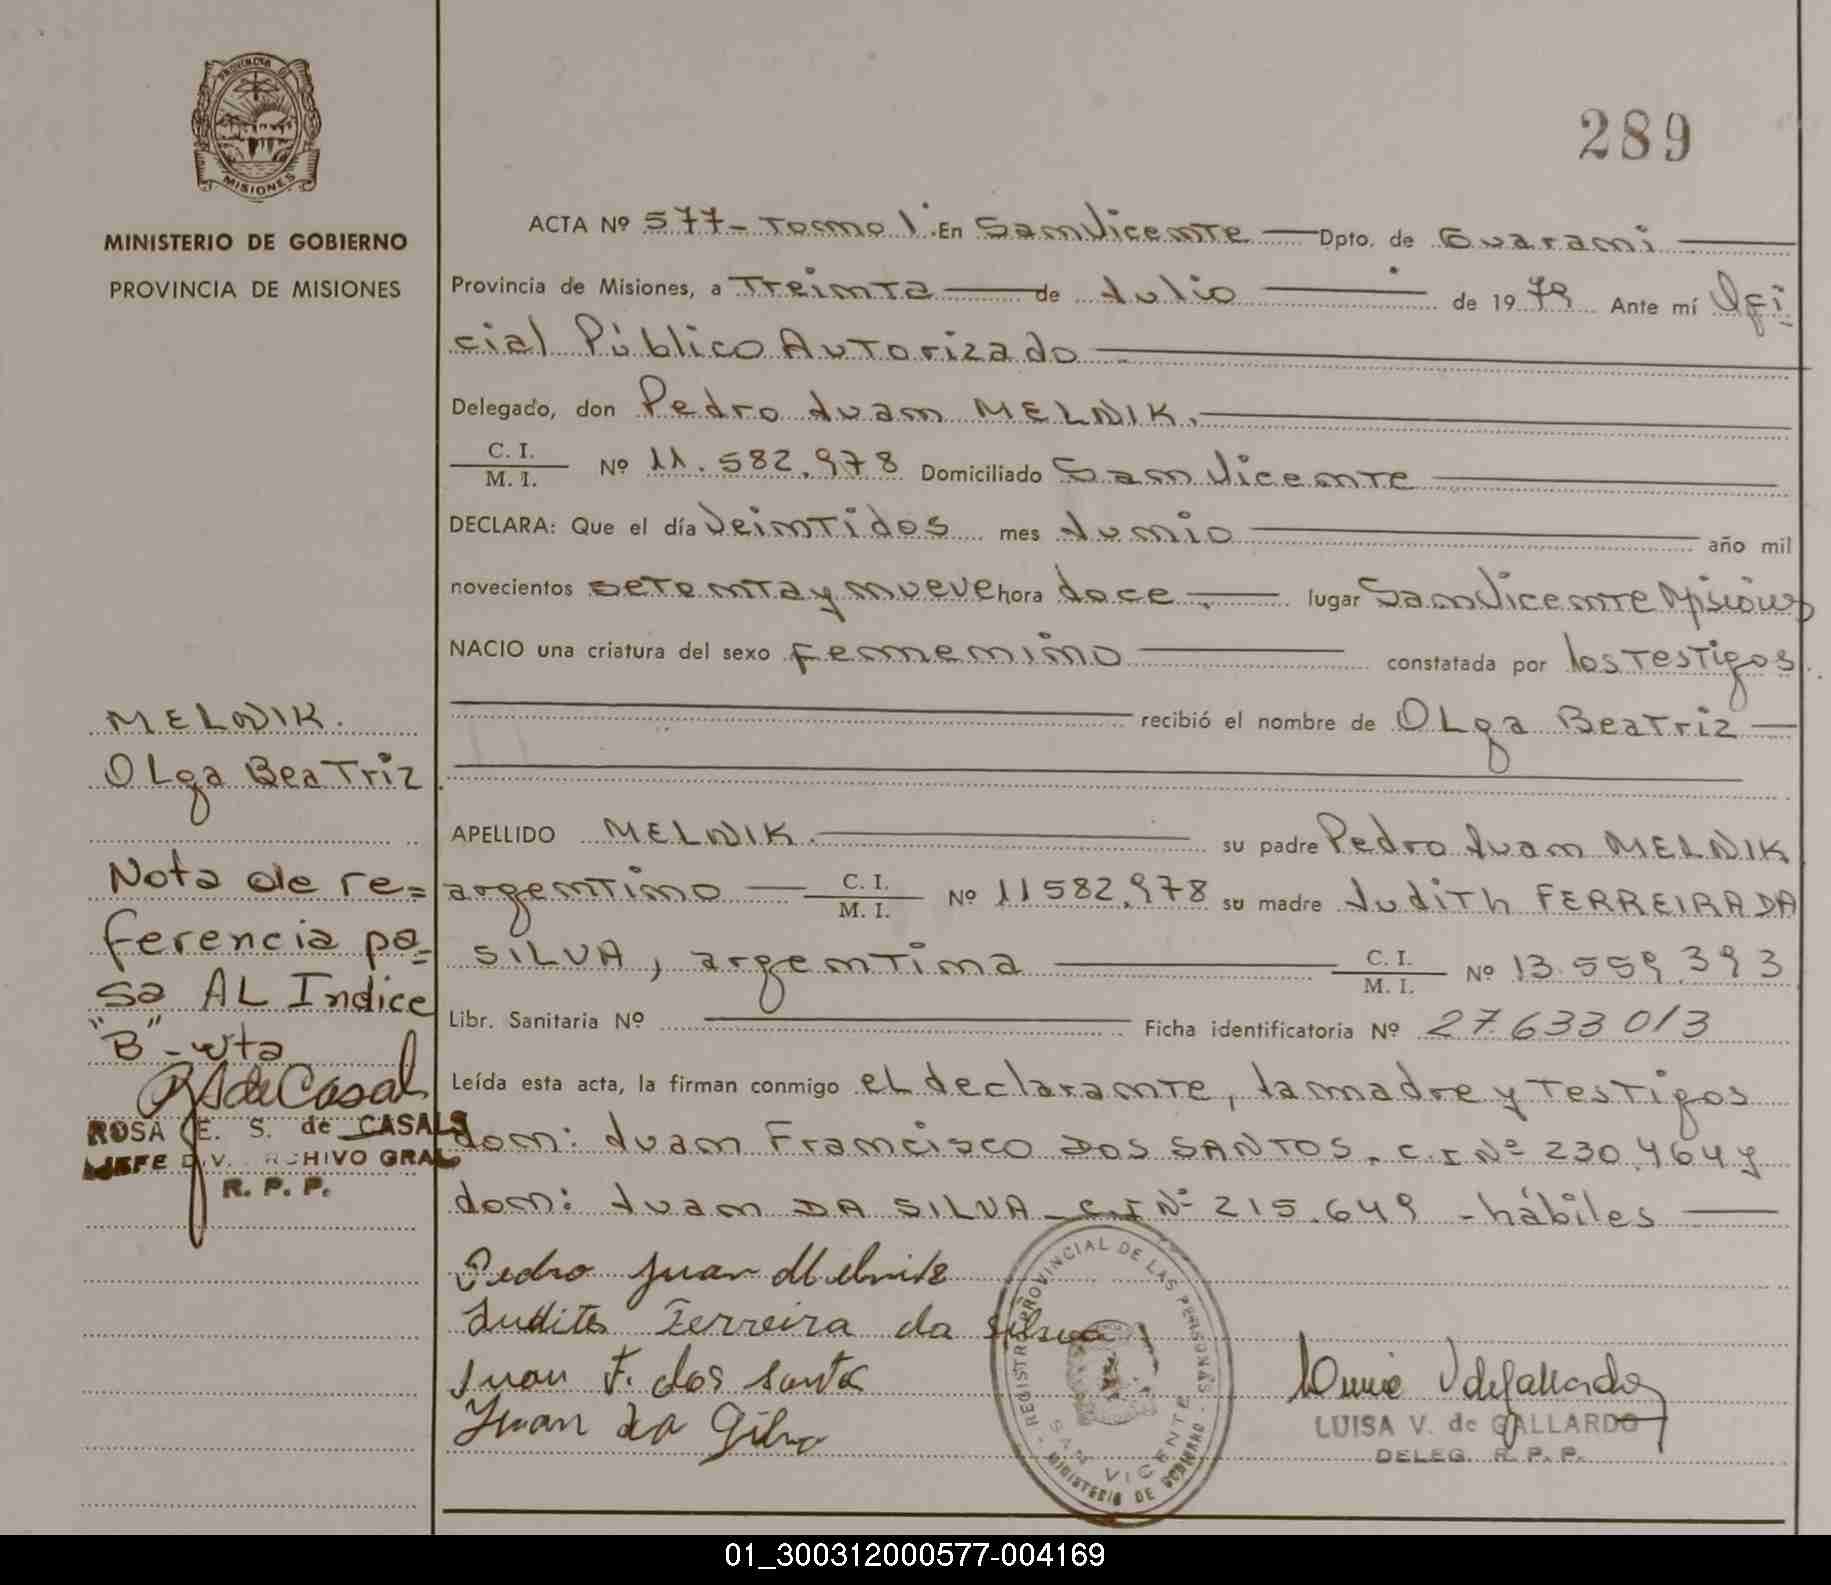 PROVINCIA DE
MISIONES
MINISTERIO DE GOBIERNO
PROVINCIA DE MISIONES
289
ACTA Nº 577- Tomo 1º En San Vicente Dpto. de Guaraní
Provincia de Misiones, a Treinta de Julio de 1979 Ante mí Ofi
cial Público Autorizado
Delegado, don Pedro Juan MELNIK.
C. I.
M. I. Nº 11.582.978 Domiciliado San Vicente
DECLARA: Que el día Veintidos mes Junio año mil
novecientos setenta y nueve hora doce lugar San Vicente Misiones
NACIO una criatura del sexo femenino constatada por los Testigos
recibió el nombre de OLga BeaTriz
APELLIDO MELNIK. su padre Pedro Juan MELNIK
argentino C. I.
M. I. Nº 11582.978 su madre Judith FERREIRA DA
SILVA, argentina C. I.
M. I. Nº 13.559.393
Libr. Sanitaria Nº Ficha identificatoria Nº 27.633013
Leída esta acta, la firman conmigo el declarante, la madre y Testigos
don: Juan Francisco DOS SANTOS. C.I Nº 230.464 y
don: Juan DA SILVA - C.I Nº 215.649 - hábiles
Pedro Juan Melnik
Judite Ferreira da Silva
Juan F. dos santos
Juan da Silva
REGISTRO PROVINCIAL DE LAS PERSONAS
SAN VICENTE
MINISTERIO DE GOBIERNO
LUISA V. de GALLARDO
DELEG. R. P. P.
MELNIK.
OLga BeaTriz
Nota de re=
ferencia pa=
sa AL Indice
"B" - wta
RSdeCasals
ROSA E. S. de CASALS
JEFE DIV. ARCHIVO GRAL
R. P. P.
01_300312000577-004169